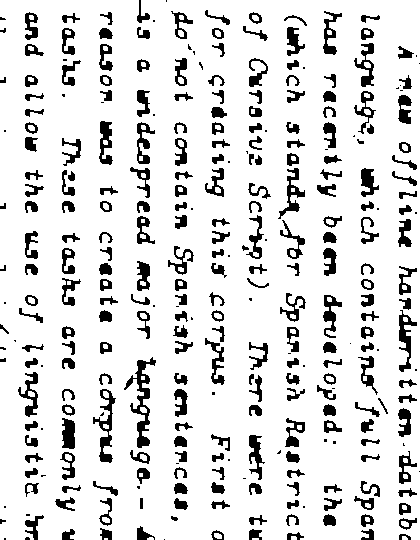 A new offline handwritten databa
language, which contains full Span
has recently been developed: the
(which stands for Spanish Restrict
of Cursive Script). There were tw
for creating this corpus. First o
do not contain Spanish sentences,
is a widespread major language.
reason was to create a corpus from
tasks. These tasks are commonly u
and allow the use of linguistic